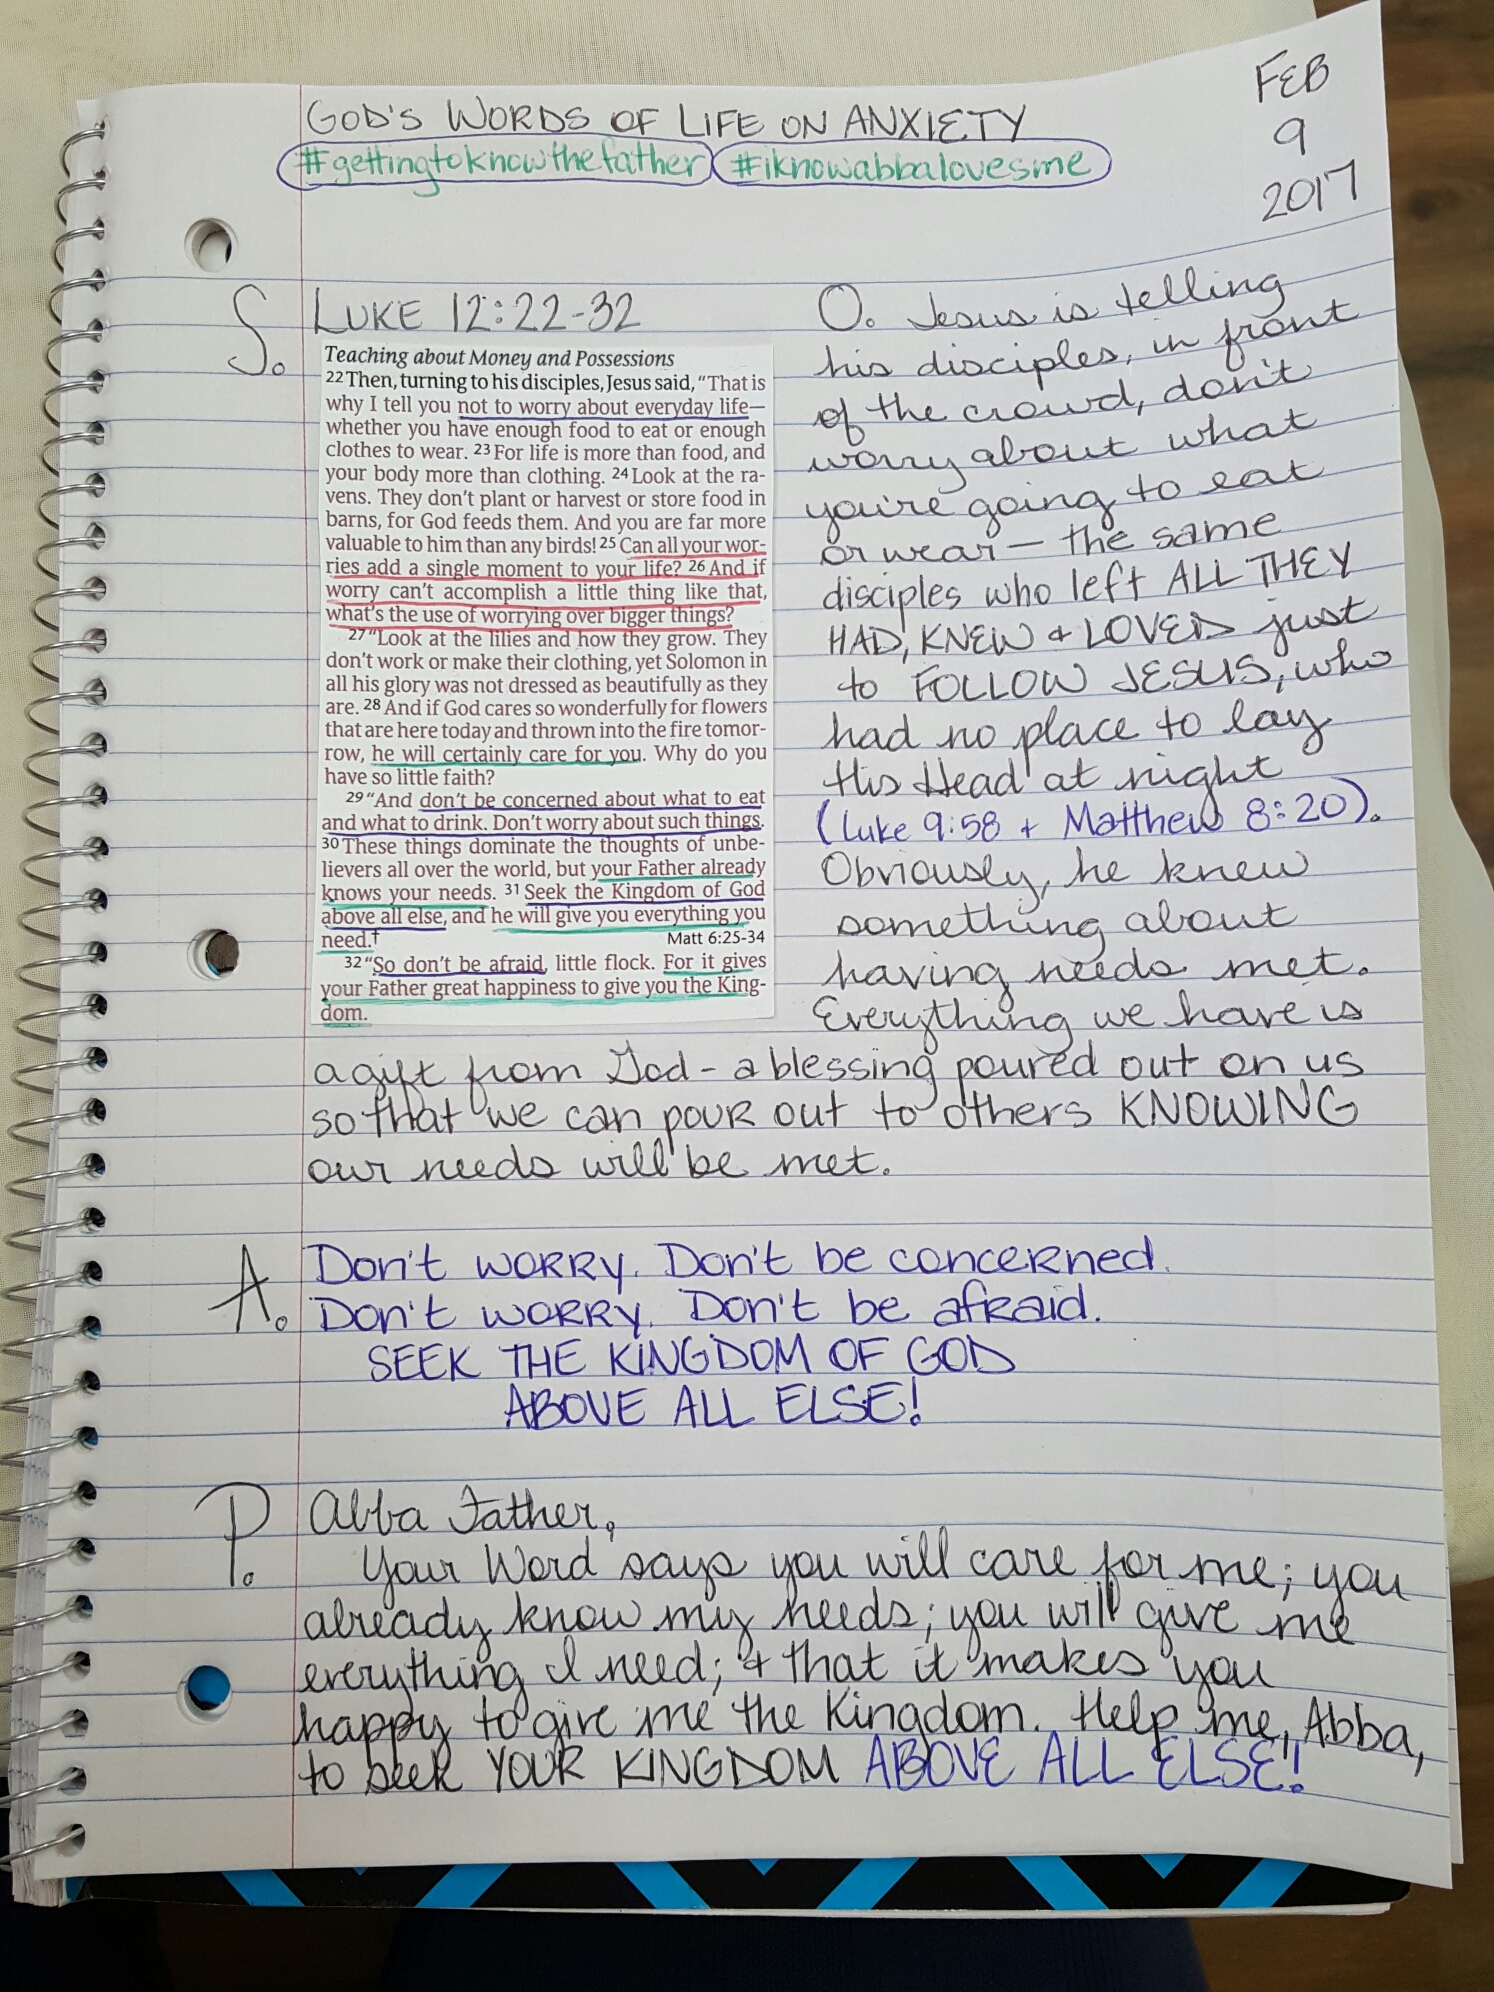 GOD'S WORDS OF LIFE ON ANXIETY
#gettingtoknowthefather #iknowabbalovesme
FEB
9
2017
S. LUKE 12:22-32
Teaching about Money and Possessions
22 Then, turning to his disciples, Jesus said, "That is
why I tell you not to worry about everyday life—
whether you have enough food to eat or enough
clothes to wear. 23 For life is more than food, and
your body more than clothing. 24 Look at the ra-
vens. They don't plant or harvest or store food in
barns, for God feeds them. And you are far more
valuable to him than any birds! 25 Can all your wor-
ries add a single moment to your life? 26 And if
worry can't accomplish a little thing like that,
what's the use of worrying over bigger things?
27 "Look at the lilies and how they grow. They
don't work or make their clothing, yet Solomon in
all his glory was not dressed as beautifully as they
are. 28 And if God cares so wonderfully for flowers
that are here today and thrown into the fire tomor-
row, he will certainly care for you. Why do you
have so little faith?
29 "And don't be concerned about what to eat
and what to drink. Don't worry about such things.
30 These things dominate the thoughts of unbe-
lievers all over the world, but your Father already
knows your needs. 31 Seek the Kingdom of God
above all else, and he will give you everything you
need.† Matt 6:25-34
32 "So don't be afraid, little flock. For it gives
your Father great happiness to give you the King-
dom.
O. Jesus is telling
his disciples, in front
of the crowd, don't
worry about what
you're going to eat
or wear — the same
disciples who left ALL THEY
HAD, KNEW & LOVED just
to FOLLOW JESUS, who
had no place to lay
His Head at night
(Luke 9:58 + Matthew 8:20).
Obviously, he knew
something about
having needs met.
Everything we have is
a gift from God - a blessing poured out on us
so that we can pour out to others KNOWING
our needs will be met.
A. Don't WORRY. Don't be concerned.
Don't WORRY. Don't be afraid.
SEEK THE KINGDOM OF GOD
ABOVE ALL ELSE!
P. Abba Father,
Your Word says you will care for me; you
already know my needs; you will give me
everything I need; & that it makes you
happy to give me the Kingdom. Help me, Abba,
to seek YOUR KINGDOM ABOVE ALL ELSE!